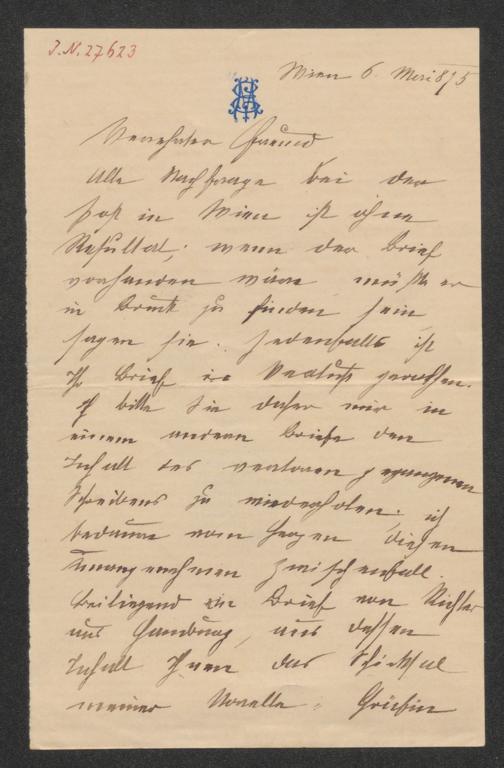 J.N. 27623
Wien 6. März 895
Verehrter Freund
Alle Nachfrage bei der
Post in Wien ist ohne
Resultat; wenn der Brief
vorhanden wäre, müßte er
in Bruck zu finden sein,
sagen sie. Jedenfalls ist
Ihr Brief in Verlust gerathen.
Ich bitte Sie daher mir in
einem andern Briefe den
Inhalt des verloren gegangenen
Schreibens zu wiederholen; ich
bedaure vom Herzen diesen
unangenehmen Zwischenfall.
Beiliegend ein Brief von Richter
aus Hamburg, aus dessen
Inhalt Ihnen das Schicksal
meiner Novelle: Gräfin